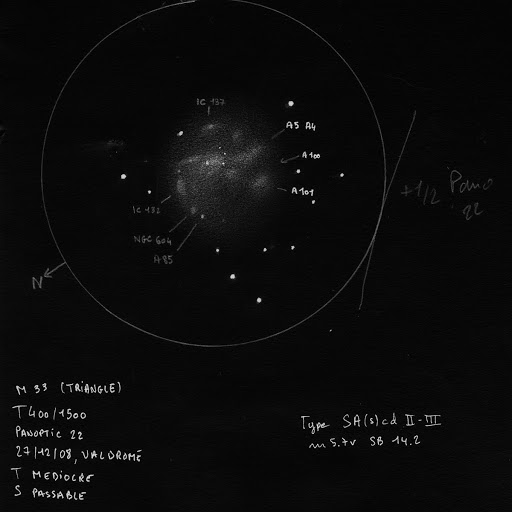 IC 137
A5 A4
A100
A101
IC 132
NGC 604
A85
+1/2 Pano
22
N
M 33 (TRIANGLE)
T400/1500
PANOPTIC 22
27/12/08, VALDROME
T MEDIOCRE
S PASSABLE
Type SA(s)cd II-III
m 5.7v SB 14.2